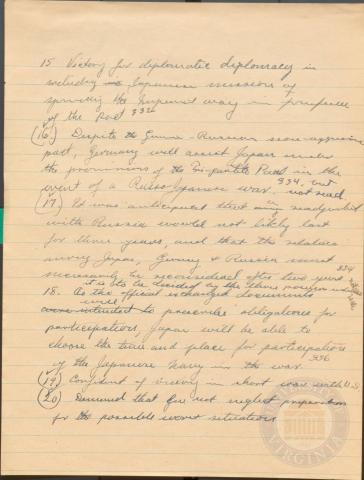 15 Victory for diplomatic diplomacy in
Japanese missions of
the Imperial way in
of the Pact 332
(16) Despite the German-Russian non-aggression
pact, Germany will assist Japan under
the provisions of the Tri-partite Pact in the
event of a Russo-Japanese war. 334, not read
(17) It was anticipated that any
with Russia would not likely last
for three years, and that the relations
among Japan, Germany & Russia must
necessarily be reconsidered after two years. 334
it is to be decided by the three powers
18. As the official exchanged documents
will
were intended to prescribe obligations for
participation, Japan will be able to
choose the time and place for participation
of the Japanese Navy in the war. 336
(19) Confident of victory in short war with U.S.
(20) Demand that Gov not neglect preparation
for the possible worst situation
VIRGINIA